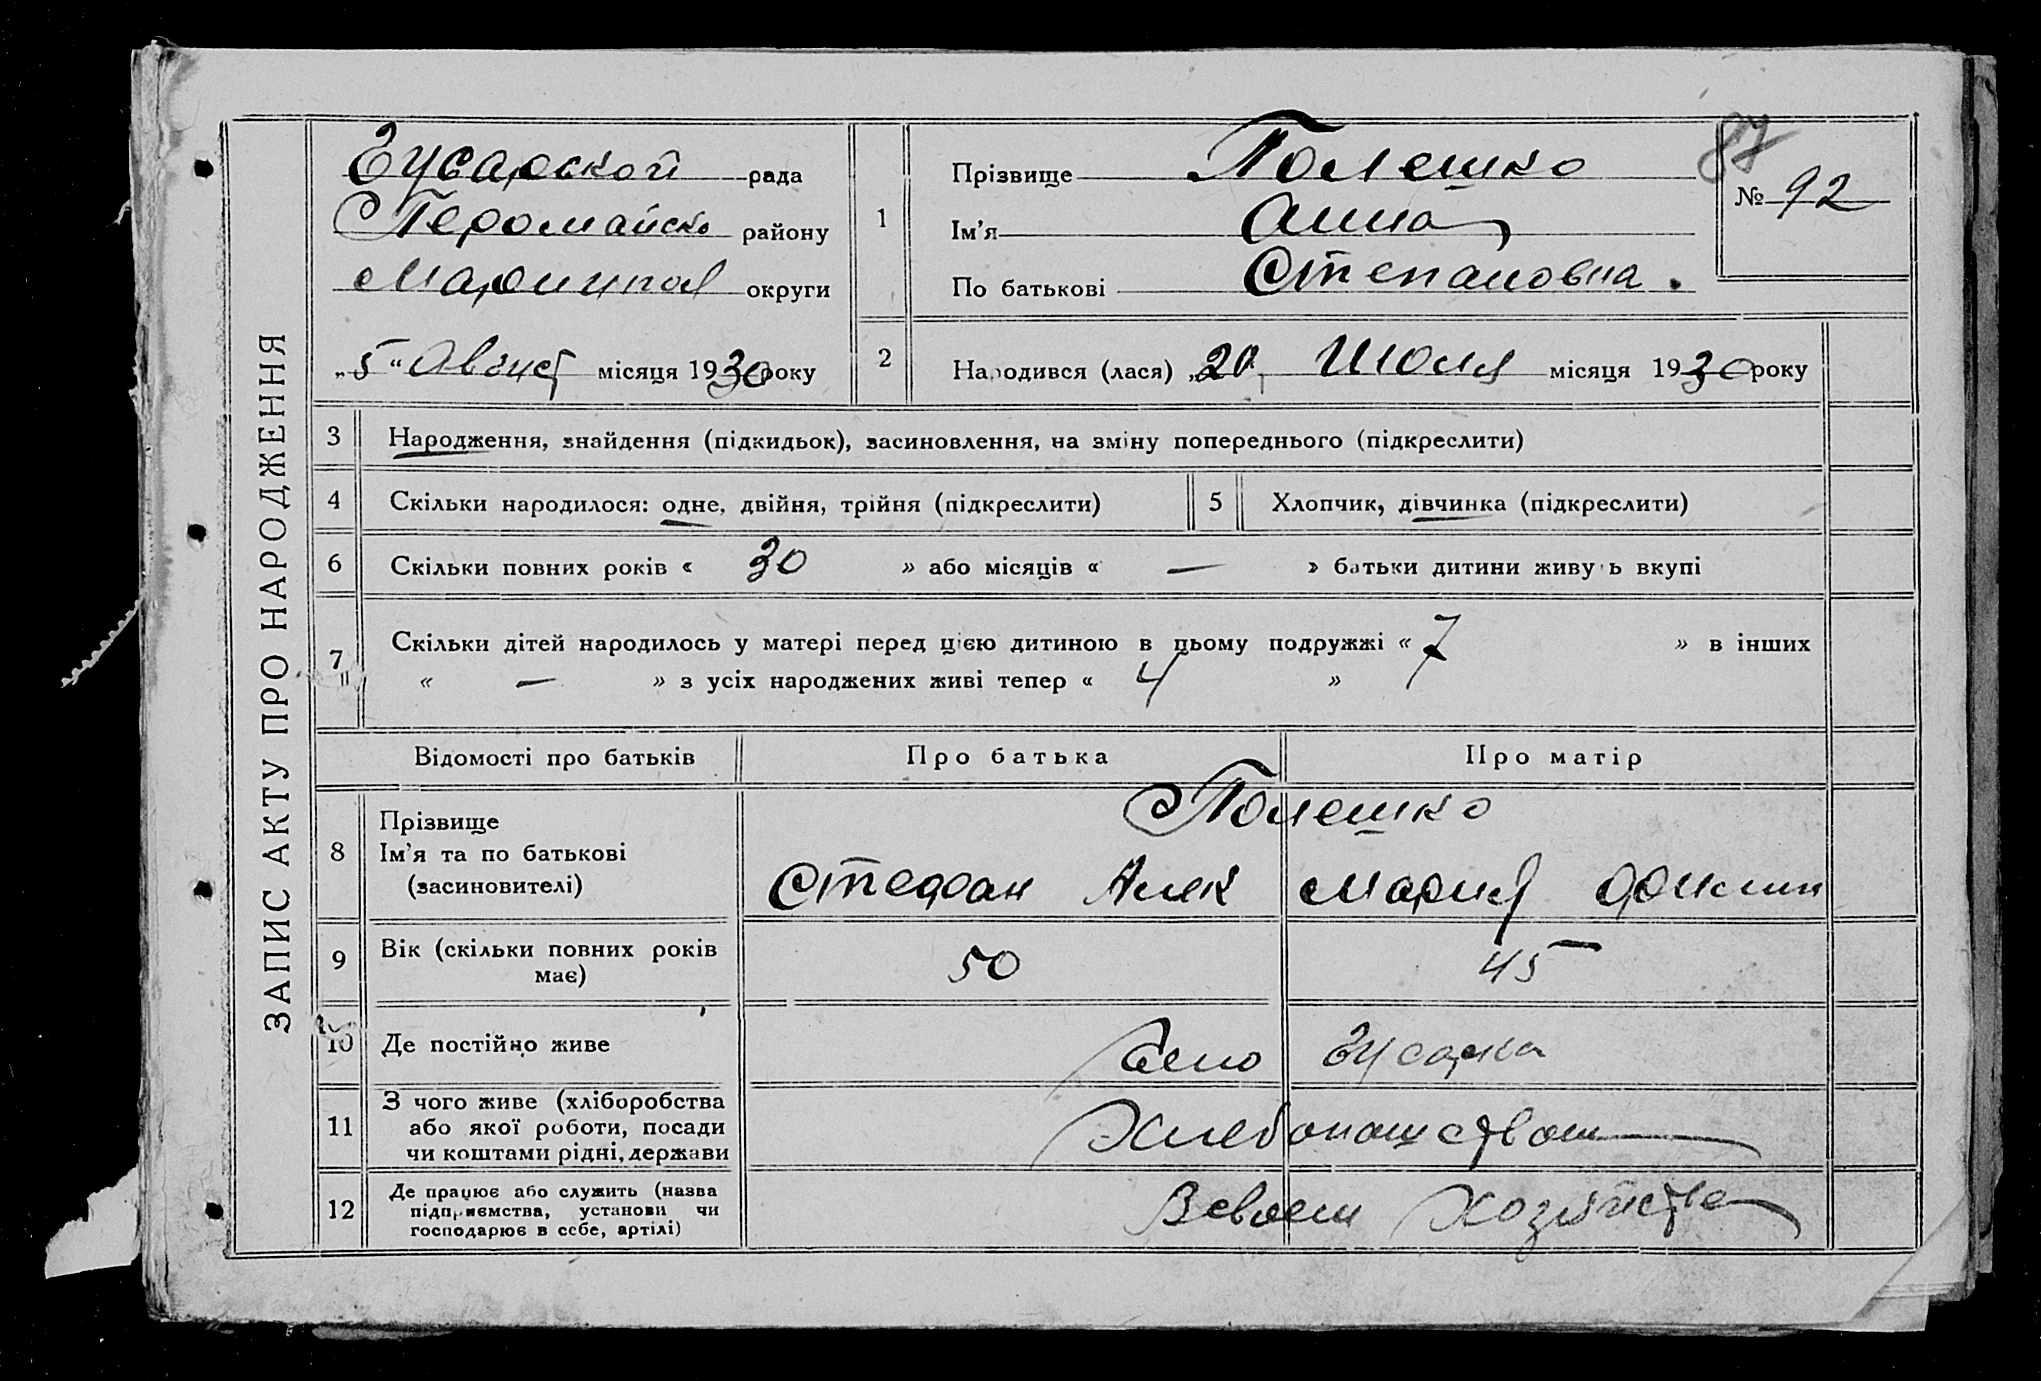 ЗАПИС АКТУ ПРО НАРОДЖЕННЯ
Гусарской рада
Первомайско району
Мариупол округи
„5“ Август місяця 1930 року
1
Прізвище Полешко
Ім'я Анна
По батькові Степановна.
87
№ 92
2 Народився (лася) „20„ Июля місяця 1930 року
3 Народження, знайдення (підкидьок), засиновлення, на зміну попереднього (підкреслити)
4 Скільки народилося: одне, двійня, трійня (підкреслити) 5 Хлопчик, дівчинка (підкреслити)
6 Скільки повних років « 30 » або місяців « — » батьки дитини живуть вкупі
7 Скільки дітей народилось у матері перед цією дитиною в цьому подружжі « 7 » в інших
« — » з усіх народжених живі тепер « 4 »
Відомості про батьків Про батька Про матір
Полешко
8 Прізвище
Ім'я та по батькові
(засиновителі)
Стефан Алек Мария
9 Вік (скільки повних років
має)
50 45
10 Де постійно живе Село Гусарка
11 З чого живе (хліборобства
або якої роботи, посади
чи коштами рідні, держави
Хлебопашеством
12 Де працює або служить (назва
підприємства, установи чи
господарює в себе, артілі)
Всвоем Хозяйстве